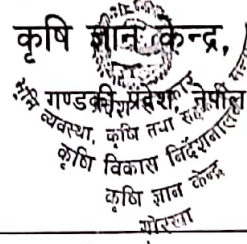 कृषि ज्ञान केन्द्र,
गण्डकी प्रदेश, नेपाल
व्यवस्था, कृषि तथा
कृषि विकास निर्देशनालय
कृषि ज्ञान केन्द्र
गोरखा